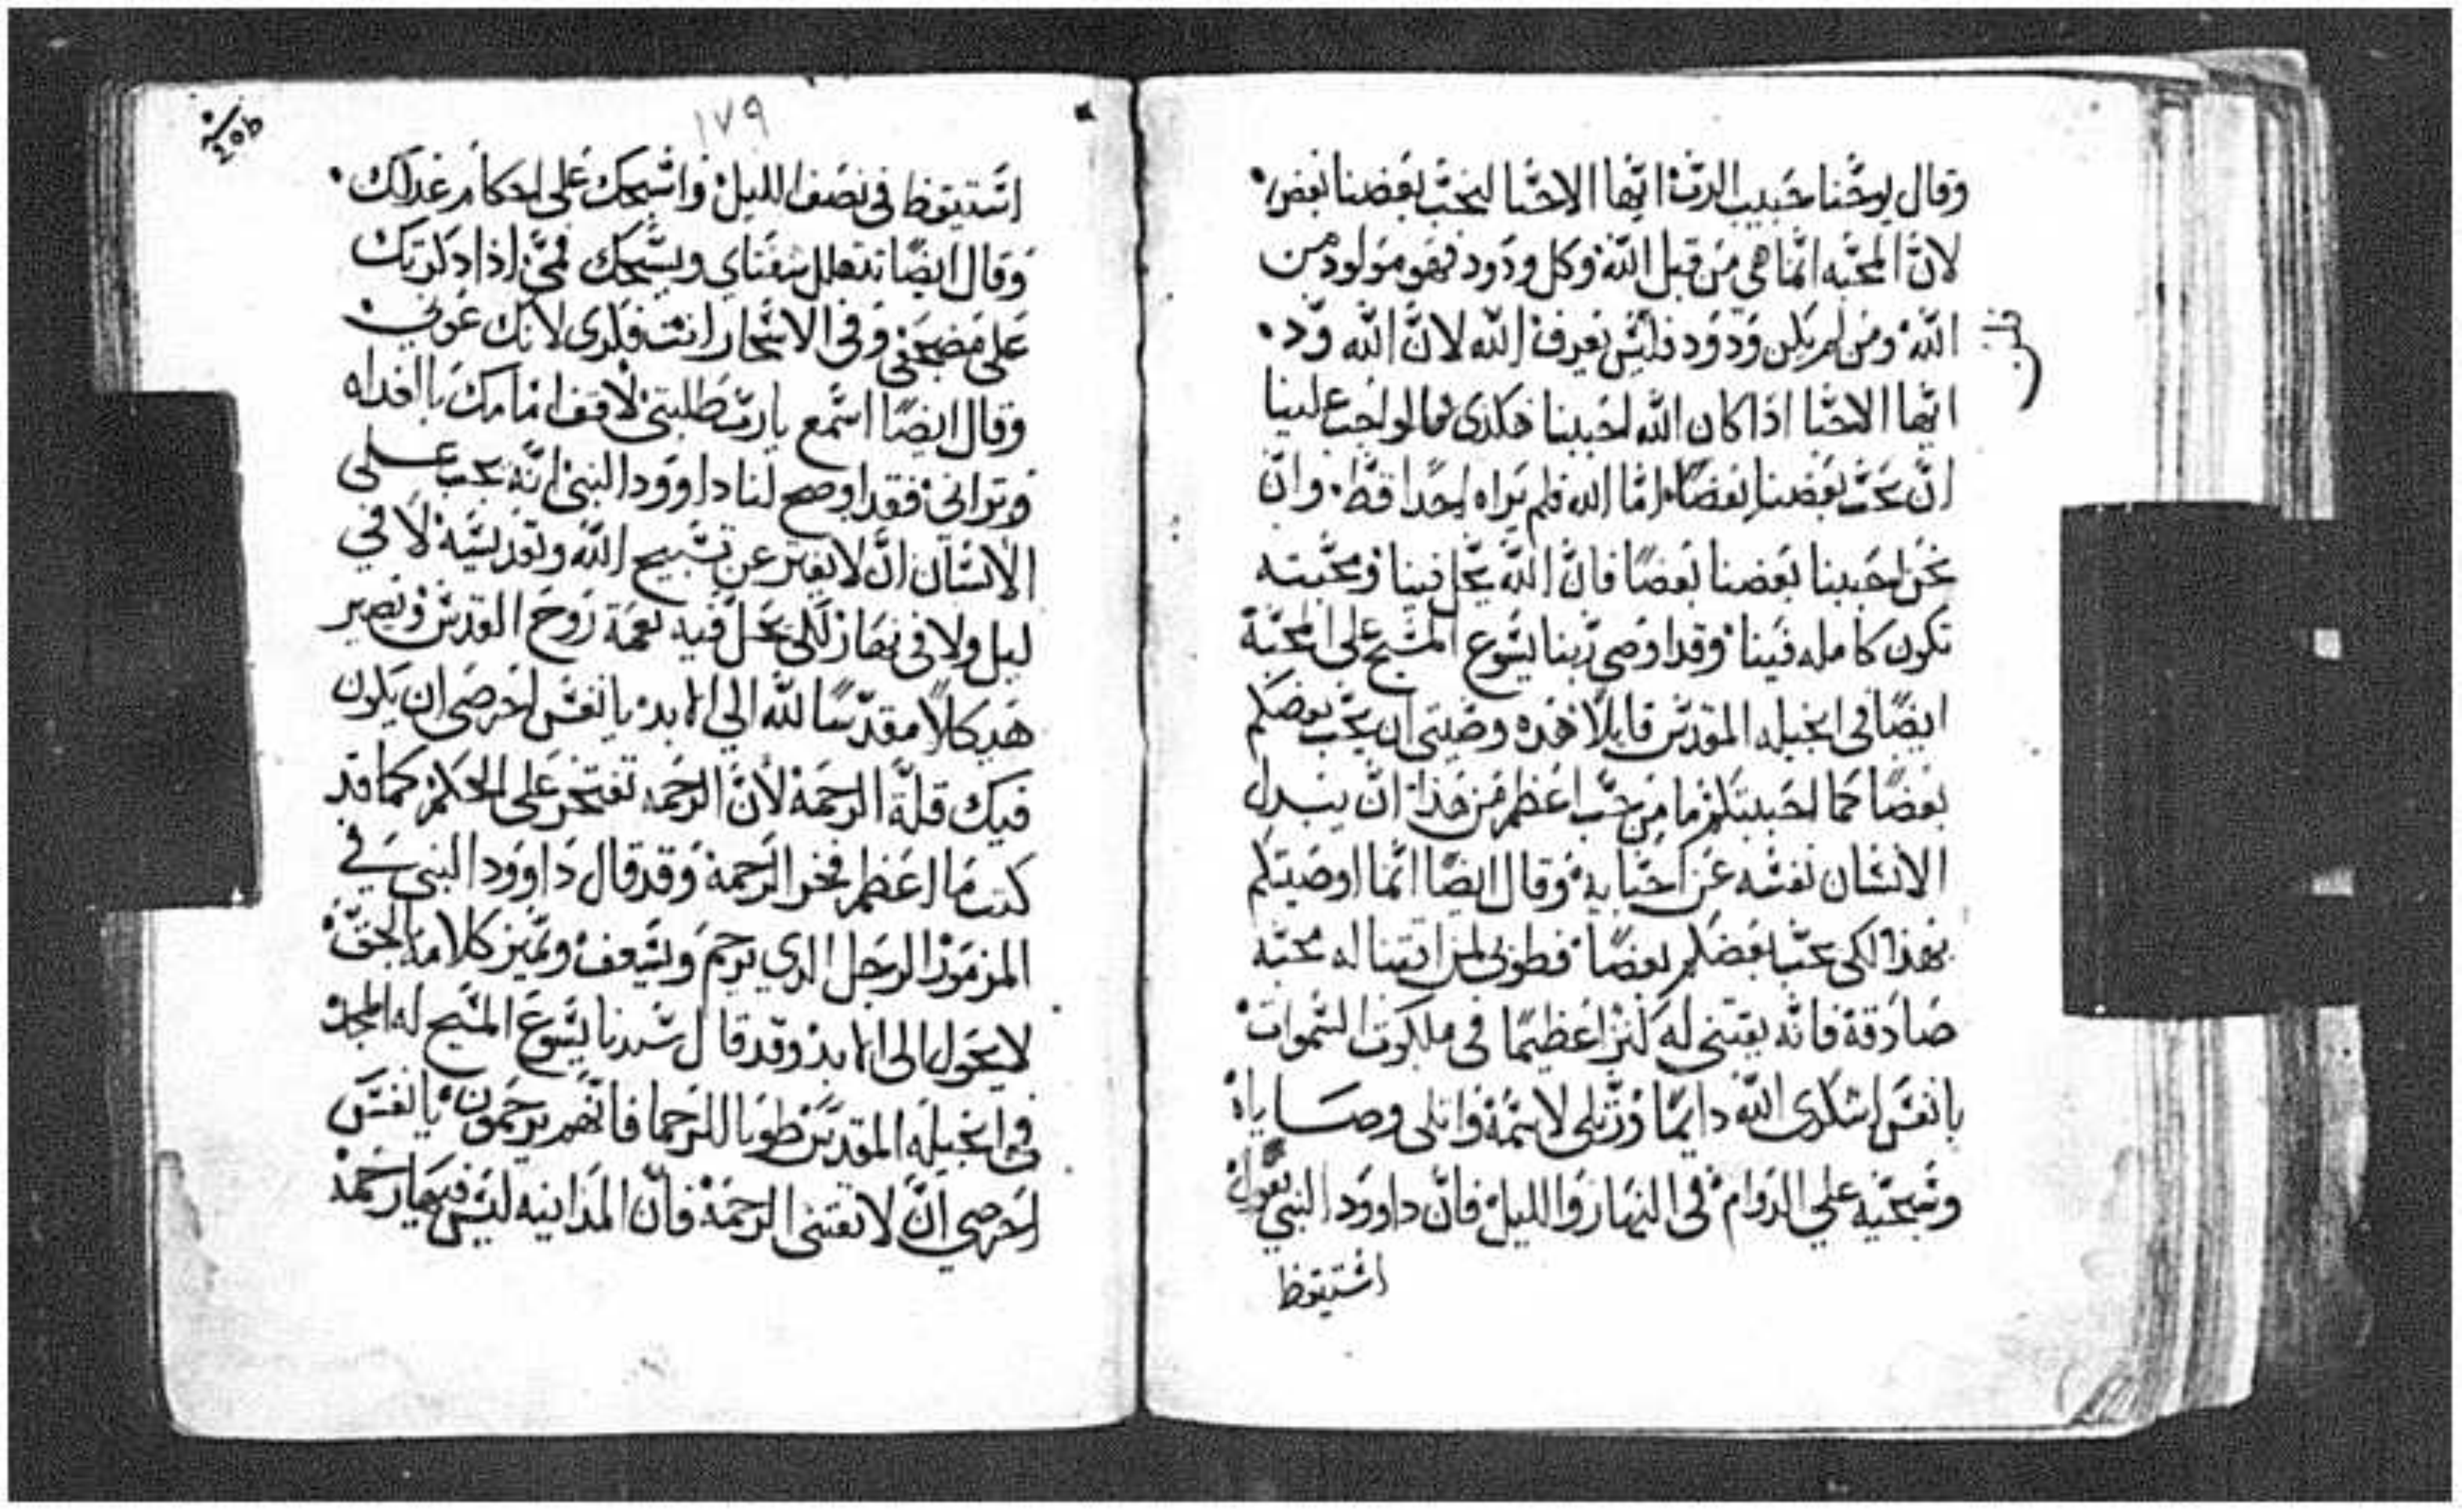 وقال يوحنا حبيب الرب ايها الاحبا ليحب بعضنا بعض
لان المحبه انما هي من قبل الله وكل ودود فهو مولود من
الله ومن لم يكن ودود فليس يعرف الله لان الله ود
ايها الاحبا اذا كان الله احببنا هكذى فما لواجب علينا
ان نحب بعضنا بعضا اما الله فلم يراه احدا قط وان
نحن احببنا بعضنا بعضا فان الله يحل فينا ومحبته
تكون كامله فينا وقد اوصى ربنا يسوع المسيح على المحبة
ايضا فى انجيله المقدس قايلا هذه وصيتى ان يحب بعضكم
بعضا كما احببتكم ما من حب اعظم من هذا ان يبدل
الانسان نفسه عن احبايه وقال ايضا انما اوصيتكم
بهذا لكى يحب بعضكم بعضا فطوبى لمن اقتنا له محبه
صادقة فانه يقتنى له كنز اعظيما فى ملكوت السموات
يا نفس اشكرى الله دايما ورتلى لاسمه واتلى وصاياه
وسبحيه علي الدوام فى النهار والليل فان داوود النبي يقول
استيقظ
١٧٩
استيقظ فى نصف الليل واسبحك على احكام عدلك
وقال ايضا تتهلل شفتاي ويسبحك فمى اذا ذكرتك
على مضجعى وفى الاسحار انت فكرى لانك عونى
وقال ايضا اسمع يارب طلبتى لاقف امامك بالغداه
وترانى فقد اوضح لنا داوود النبى انه يجب على
الانسان ان لا يفتر عن تسبيح الله وتقديسه لا في
ليل ولا فى نهار لكى يحل فيه نعمة روح القدس ويصير
هيكلا مقدسا لله الي الابد يا نفس احرصى ان يكون
فيك قلة الرحمة لان الرحمه تفتخر على الحكم كما قد
كتب ما اعظم فخر الرحمة وقد قال داوود النبى في
المزمور الرجل الدي يرحم ويسعف ويميز كلامه بالحق
لا يحول الى الابد وقد قال سيدنا يسوع المسيح له المجد
فى انجيله المقدس طوبا للرحما فانهم يرحمون يا نفس
احرصي ان لا تقتنى الرحمة فان المداينه ليس فيها رحمة